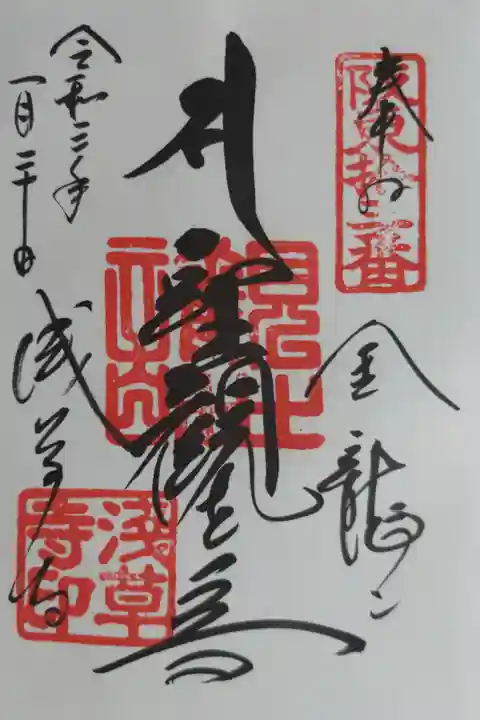 奉拝
阪東拾三番
金龍山
聖觀世音
令和三年
一月二十日
浅草寺
浅草
寺印